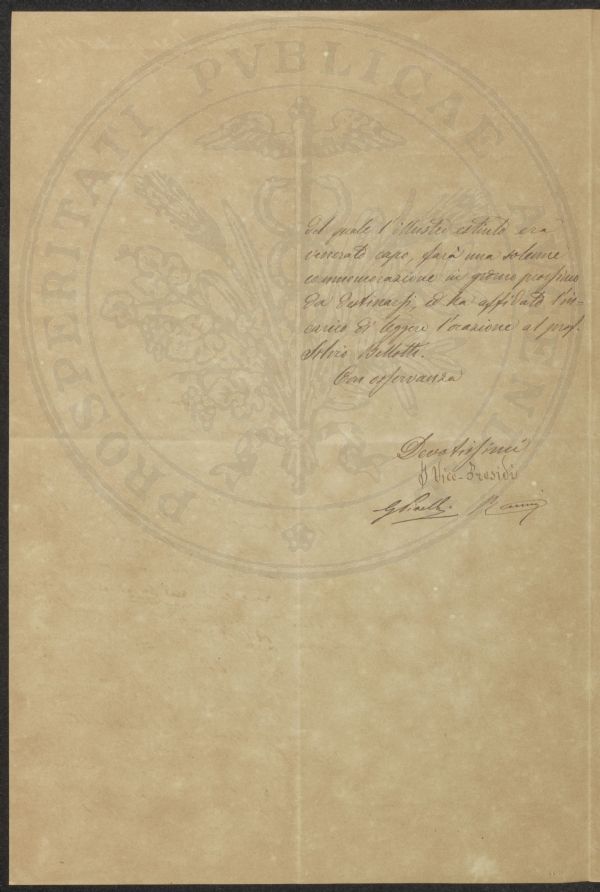 PROSPERITATI PVBLICAE AVGENDAE
del quale l'illustre estinto era
venerato capo, farà una solenne
commemorazione in giorno prossimo
da destinarsi, ed ha affidato l'in-
carico di leggere l'orazione al prof.
Bellotti.
Con osservanza
Devotissimi
I Vice-Presidi